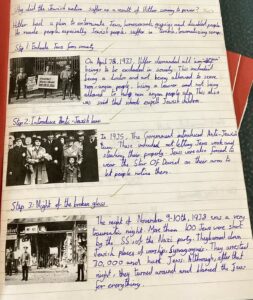 How did the Jewish nation suffer as a result of Hitler coming to power?
Hitler had a plan to exterminate Jews, homosexuals, gypsies and disabled people
to make people, especially Jewish people suffer in
Step 1: Exclude Jews from society
On April 7th, 1933, Hitler demanded all
beings to be excluded in society. This included
being a doctor and not being allowed to serve
non-aryan people, being a lawyer and not being
allowed to help non aryan people only. The
was said that schools expell Jewish children.
Step 2: Introduce Anti-Jewish laws
In 1935, The Government introduced Anti-Jewish
laws. These included not letting Jews work and
their property. Jews were also forced to
wear the Star Of David on their arms to
let people notice them.
Step 3: Night of the broken glass
The night of November 9-10th, 1938 was a very
night. More than 100 Jews were shot
by the SS of the Nazi party. They burnt down
Jewish places of worship: Synagogues. They arrested
20,000 and hurt Jews. Although, after that
night, they turned around and blamed the Jews
for everything.